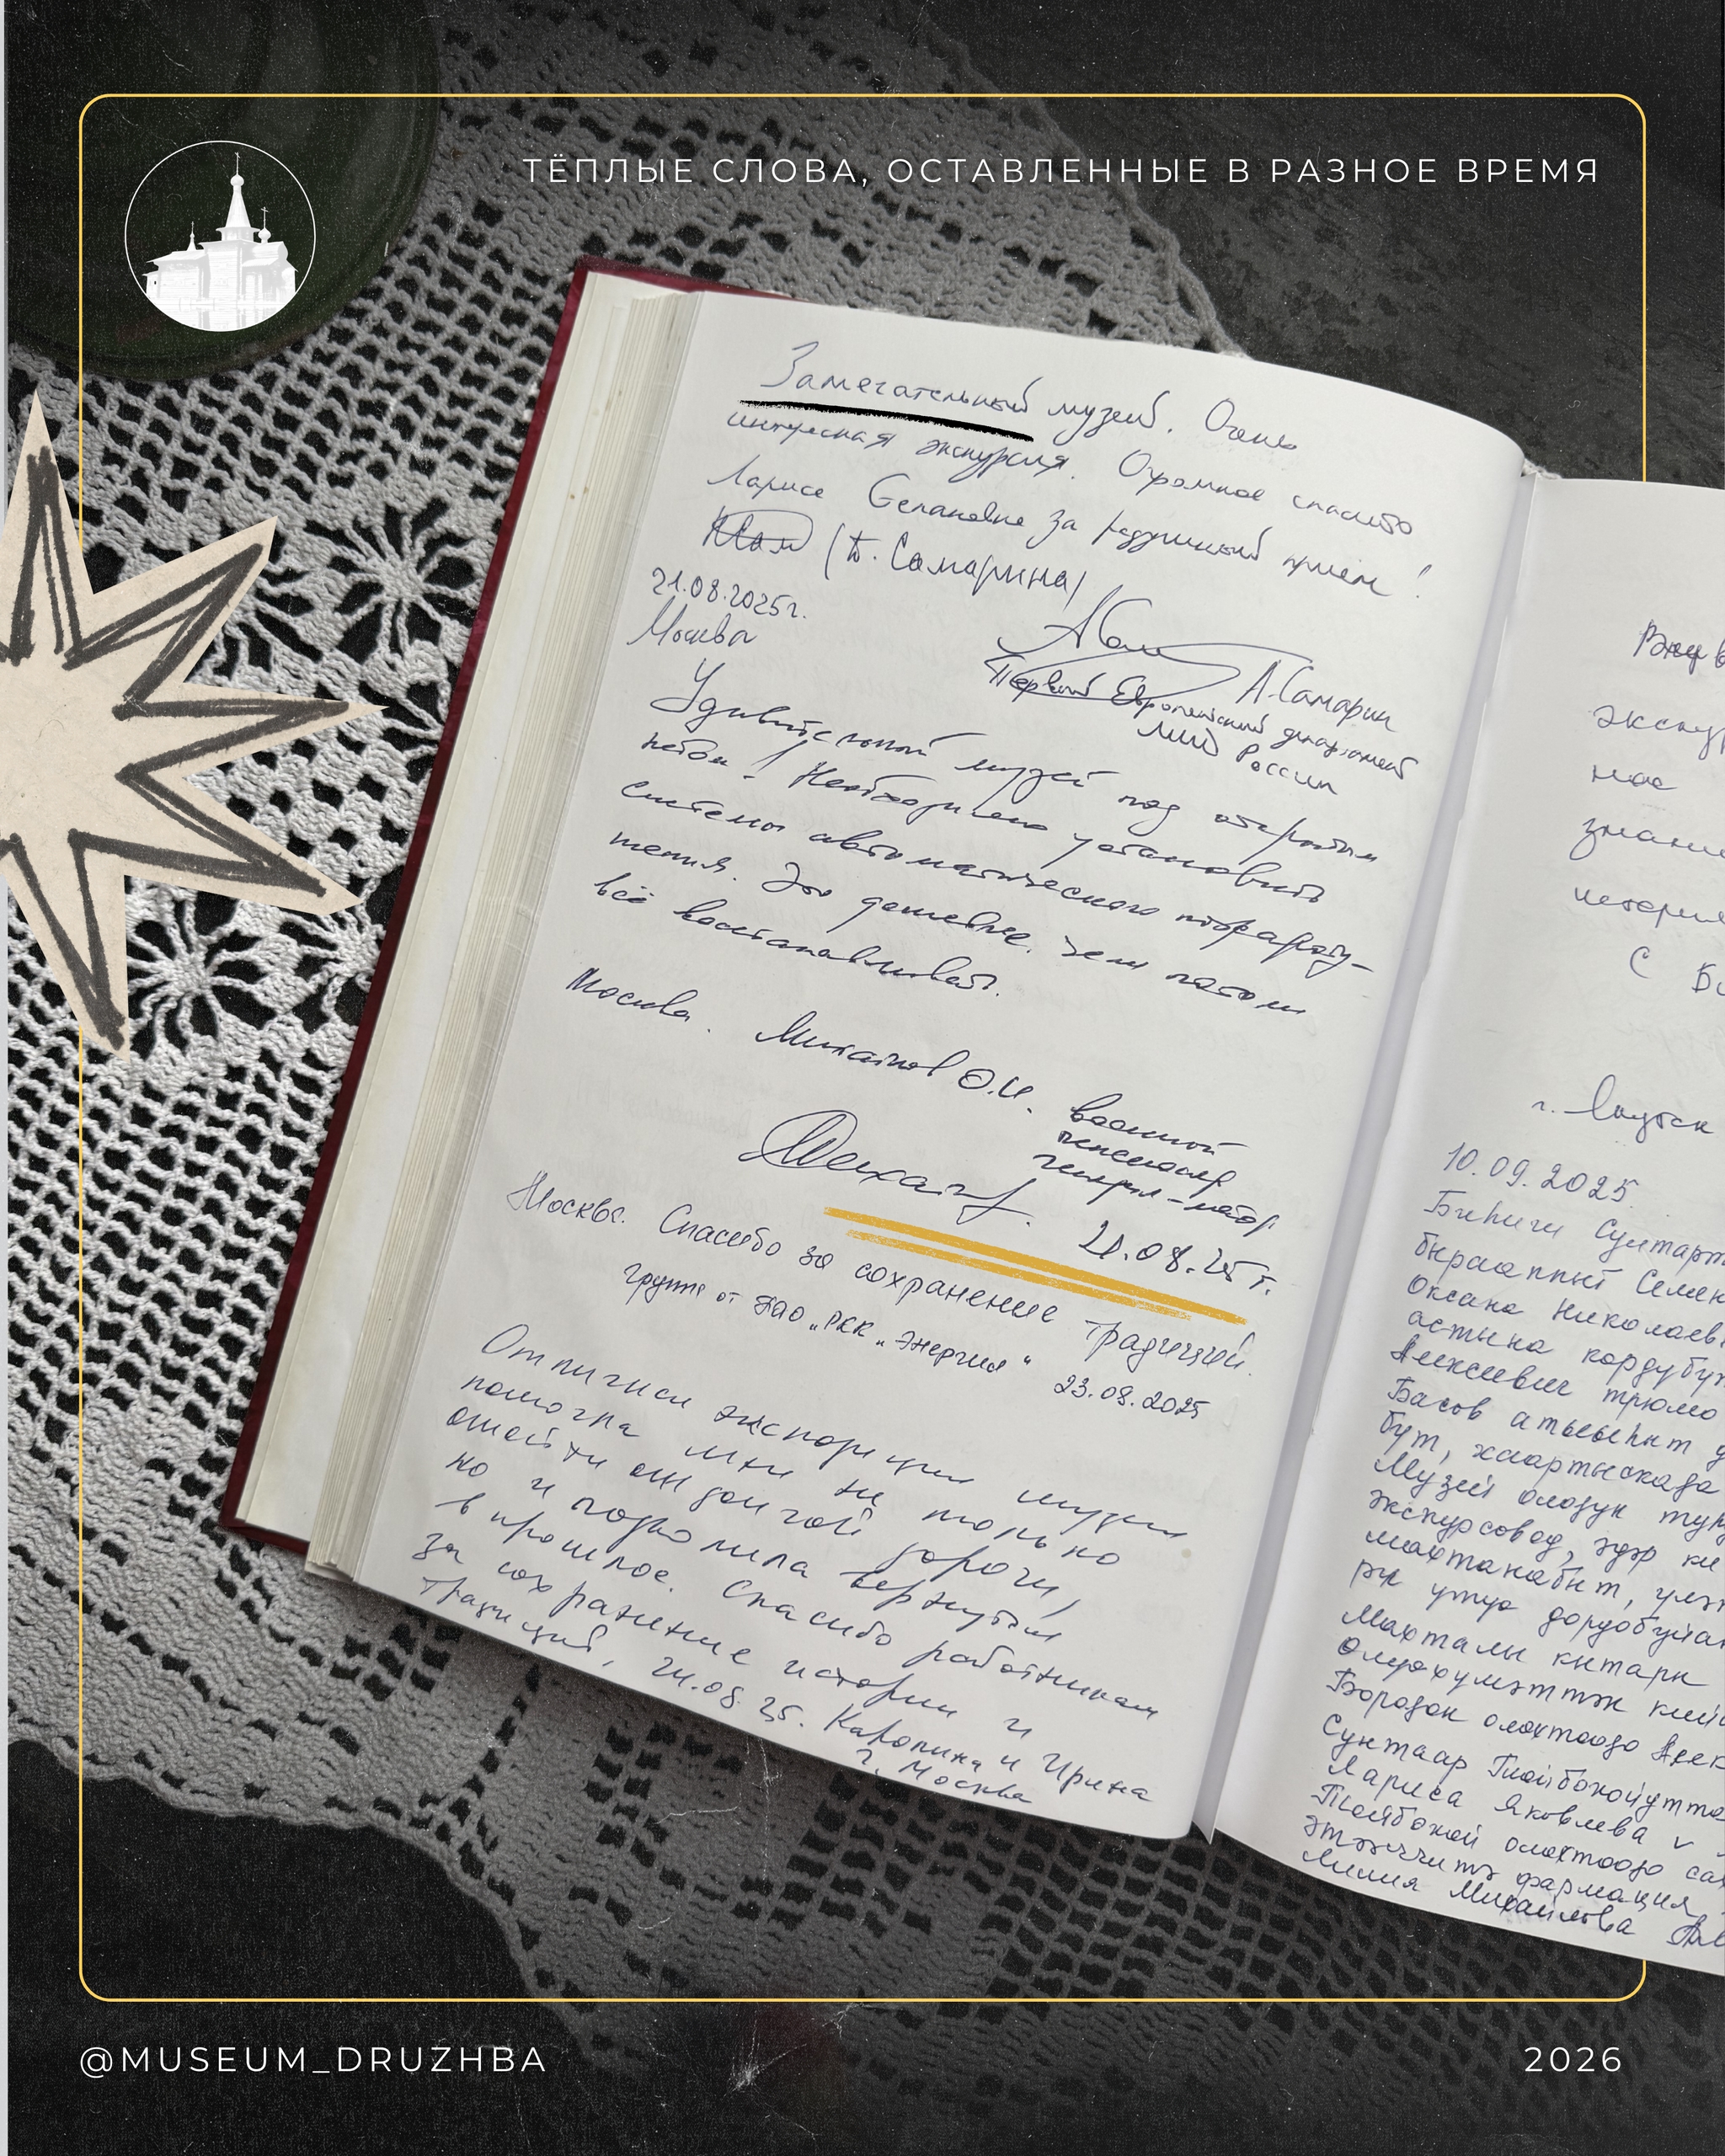 ТЁПЛЫЕ СЛОВА, ОСТАВЛЕННЫЕ В РАЗНОЕ ВРЕМЯ
Замечательный музей. Очень
интересная экскурсия. Огромное спасибо
Ларисе Степановне за радушный прием!
(Т. Самарина)
21.08.2025г.
Москва
А. Самарин
Первый Европейский департамент
МИД России
Удивительный музей под открытым
небом! Необходимо установить
системы автоматического пожароту-
шения. Это дешевле, чем потом
всё восстанавливать.
Москва. О.И. военный
пенсионер
генерал-майор
21.08.25 г.
Москва. Спасибо за сохранение традиций.
Группа от ПАО "РКК "Энергия" 23.08.2025
экспозиции музея
помогла мне не только
дорогой,
но и позволила вернуться
в прошлое. Спасибо работникам
за сохранение истории и
традиций, 24.08.25. Каролина и Ирина
г. Москва
экскур
нас
знани
истори
С
г. Якутск
10.09.2025
Биһиги Сунтар
Оксана Николаев
Алексеевич
Басов
бут,
Музей
экскурсовод, эдэр ки
махтанабыт,
Махталы кытары
Бородон олохтооҕо Алек
Сунтаар Тойбохой
Лариса Яковлева
Тойбохой олохтооҕо
фармация
Лилия Михайлова
@MUSEUM_DRUZHBA
2026